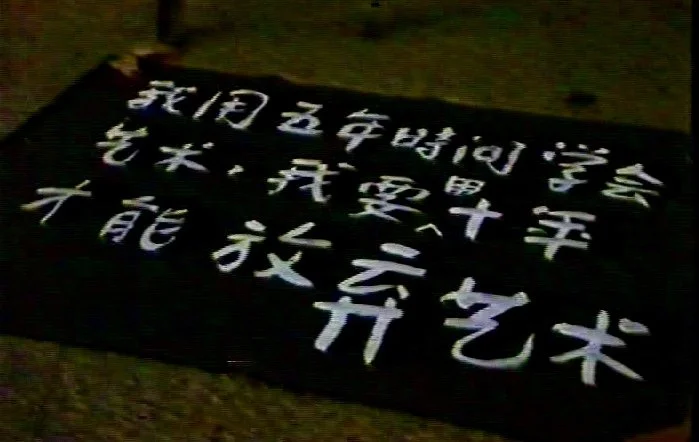 我用五年時间学会
艺术，我要用十年
才能放弃艺术